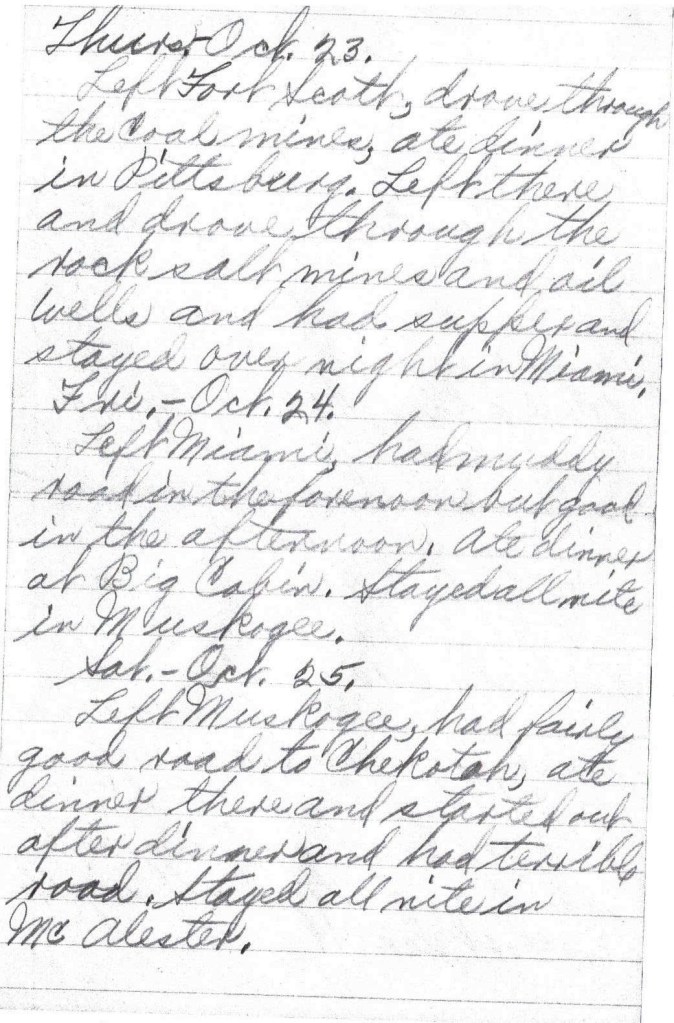 Thurs.-Oct. 23.
Left Fort Scott, drove through
the Coal mines, ate dinner
in Pittsburg. Left there
and drove through the
rock salt mines and oil
wells and had supper and
stayed over night in Miami.
Fri.-Oct. 24.
Left Miami, had muddy
road in the forenoon but good
in the afternoon. Ate dinner
at Big Cabin. Stayed all nite
in Muskogee.
Sat.-Oct. 25.
Left Muskogee, had fairly
good road to Chekotah, ate
dinner there and started out
after dinner and had terrible
road. Stayed all nite in
Mc Alester.